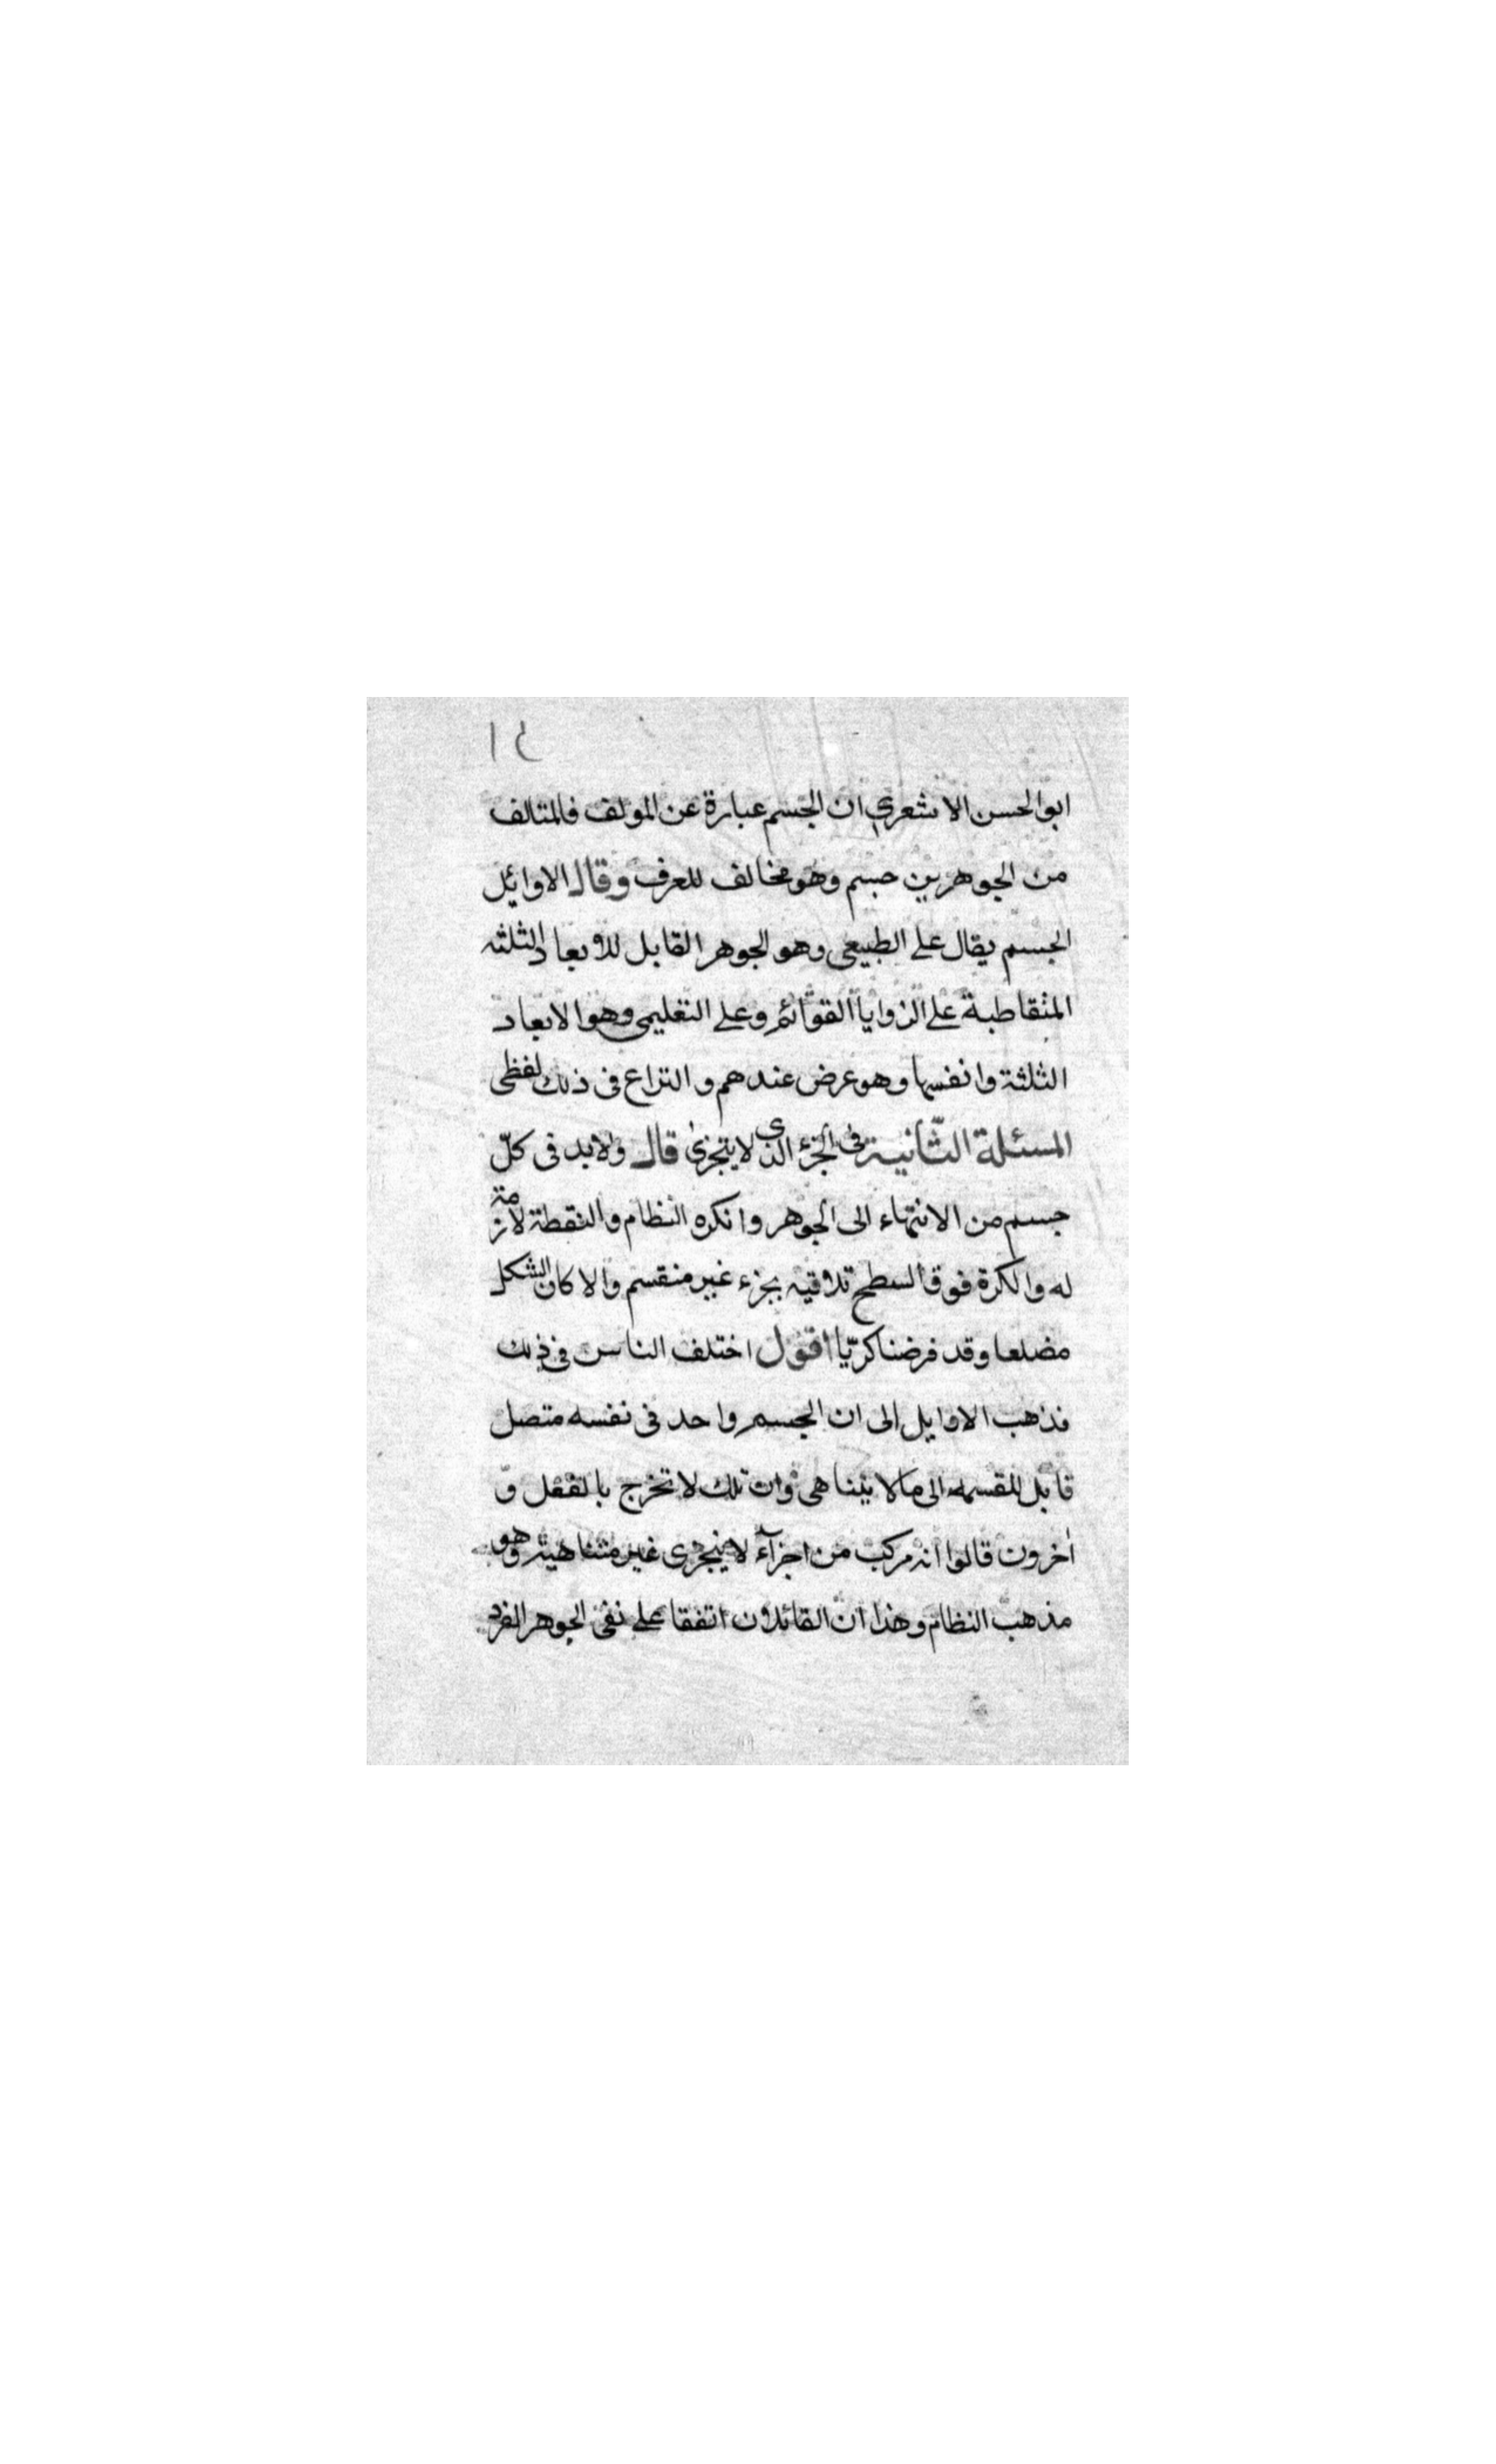 ١٤
ابو الحسن الاشعري ان الجسم عبارة عن المولف فالمتالف
من الجوهرين جسم وهو مخالف للعرف وقال الاوائل
الجسم يقال على الطبيعى وهو الجوهر القابل للابعاد الثلثه
المتقاطبة على الزوايا القوائم وعلى التعليمى وهو الابعاد
الثلثة وانفسها وهو عرض عندهم والنزاع فى ذلك لفظى
المسئلة الثّانية فى الجزء الذى لا يتجزى قال ولابد فى كلّ
جسم من الانتهاء الى الجوهر وانكره النظام والنقطة لازمة
له والكرة فوق السطح تلاقيه بجزء غير منقسم والا كان الشكل
مضلعا وقد فرضنا كريّا اقول اختلف الناس فى ذلك
فذهب الاوايل الى ان الجسم واحد فى نفسه متصل
قابل للقسمه الى ما لا يتناهى وان تلك لا تخرج بالفعل و
اخرون قالوا انه مركب من اجزآء لا يتجزى غير متناهية وهو
مذهب النظام وهذا ان القائلان اتفقا على نفى الجوهر الفرد